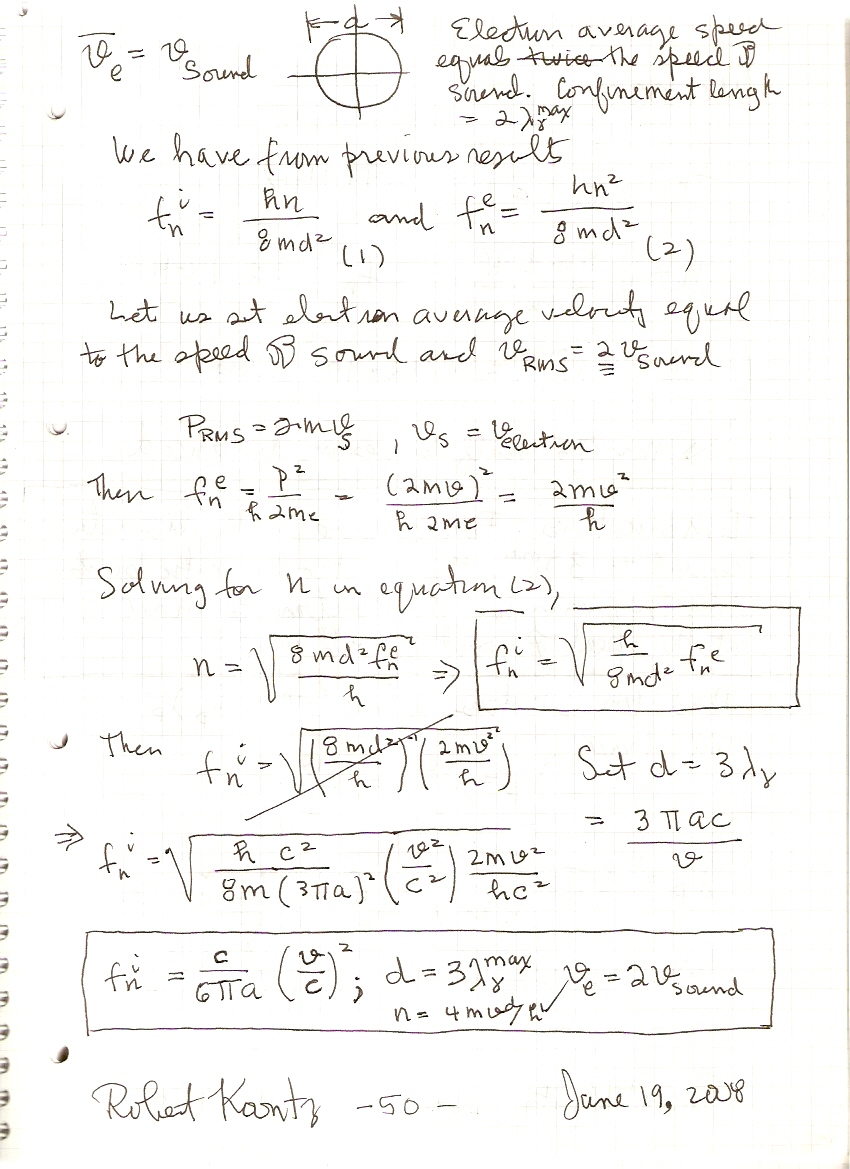 v̅e = vSound |← d →| Electron average speed
equals twice the speed of
sound. Confinement length
= 2λγmax
We have from previous result
fni = hn / 8md² (1) and fne = hn² / 8md² (2)
Let us set electron average velocity equal
to the speed of sound and vRMS = 2 vSound
PRMS = 2mvs , vs = velectron
Then fne = p² / h2me = (2mv)² / h2me = 2mv² / h
Solving for n in equation (2),
n = √(8md²fne / h) ⇒ fni = √(h / 8md² fne)
Then fni = √((8md² / h)⁻¹ (2mv² / h)) Set d = 3λγ
= 3πac / v
⇒ fni = √(h c² / 8m(3πa)² (v² / c²) 2mv² / hc²)
fni = c / 6πa (v / c)² ; d = 3λγmax ve = 2vsound
n = 4mvd/h ✓
Robert Kantz - 50 - June 19, 2008